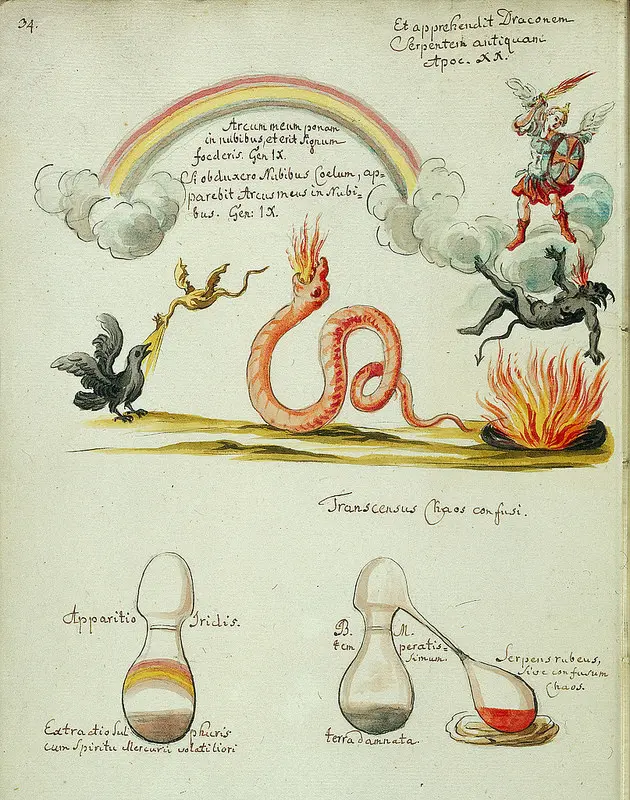 34.
Et apprehendit Draconem
Serpentem antiquam
Apoc. XX.
Arcum meum ponam
in nubibus, et erit signum
foederis. Gen IX.
Si obduxero Nubibus Coelum, ap=
parebit Arcus meus in Nubi=
bus. Gen: IX.
Transcensus Chaos confusi.
Apparitio Iridis.
Extractio Sulphuris
cum Spiritu Mercurii volatiliori
B. M.
tem peratis=
simum.
terra damnata.
Serpens rubeus,
sive confusum
Chaos.